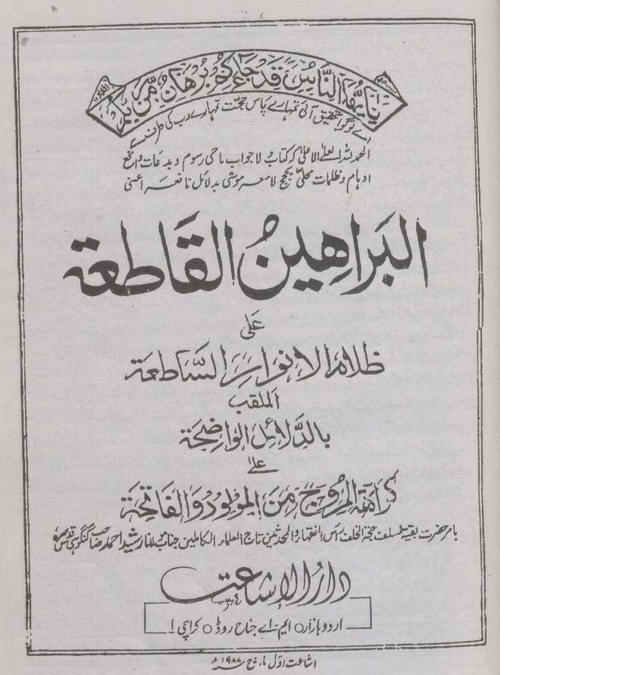 يَا أَيُّهَا النَّاسُ قَدْ جَاءَكُمْ بُرْهَانٌ مِّن رَّبِّكُمْ
اے لوگو تحقیق آئی تمہارے پاس حجت تمہارے رب کی طرف سے
الحمد للہ العلی الاعلیٰ کہ کتاب لاجواب ماحی رسوم و بدعات دافع
اوہام و ظلمات محلّٰی بحجج لامعہ موشی بدلائل نافعہ اعنی
البَراهِينُ القَاطعة
عَلٰی
ظلام الانوار السَّاطعة
الملقب
بالدَّلائل الواضحة
علیٰ
كراهة المروج من المولود والفاتحة
بامر حضرت بقیة السلف حجة الخلف راس الفقہاء والمحدثین تاج العلماء الکاملین جناب مولانا رشید احمد صاحب گنگوہی
دارُ الاشاعت
اردو بازار ایم۔اے جناح روڈ کراچی ۱
اشاعت اوّل مارچ ۱۹۸۷ء